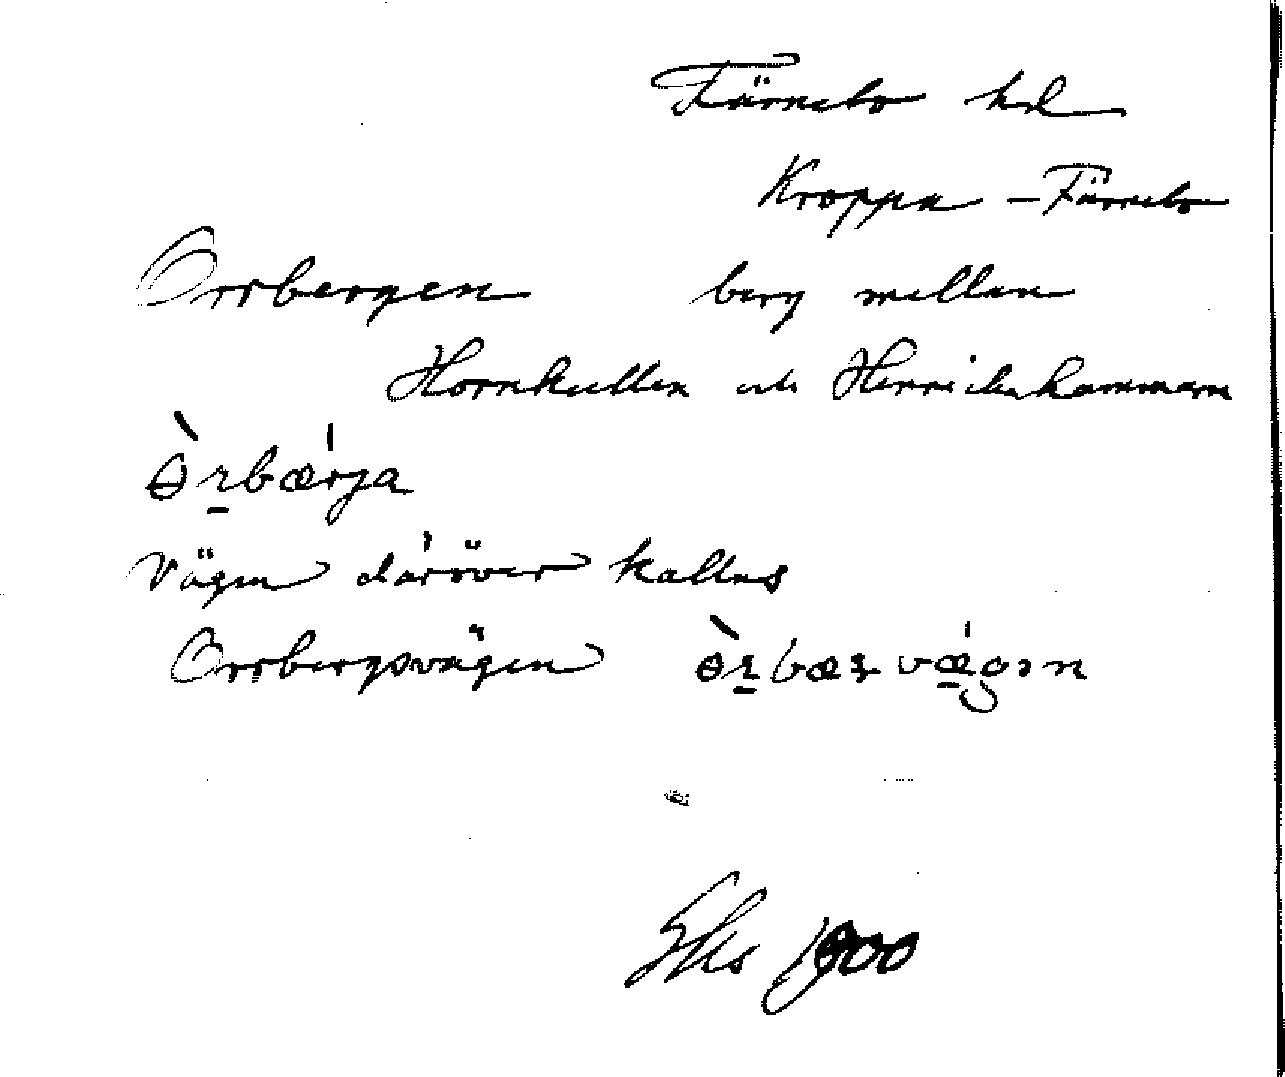 Färnebo hd
Kroppa – Färnebo
Orrbergen berg mellan
Hornkullen och Henrickshammaren
Vägen däröver kallas
Orrbergsvägen
1900